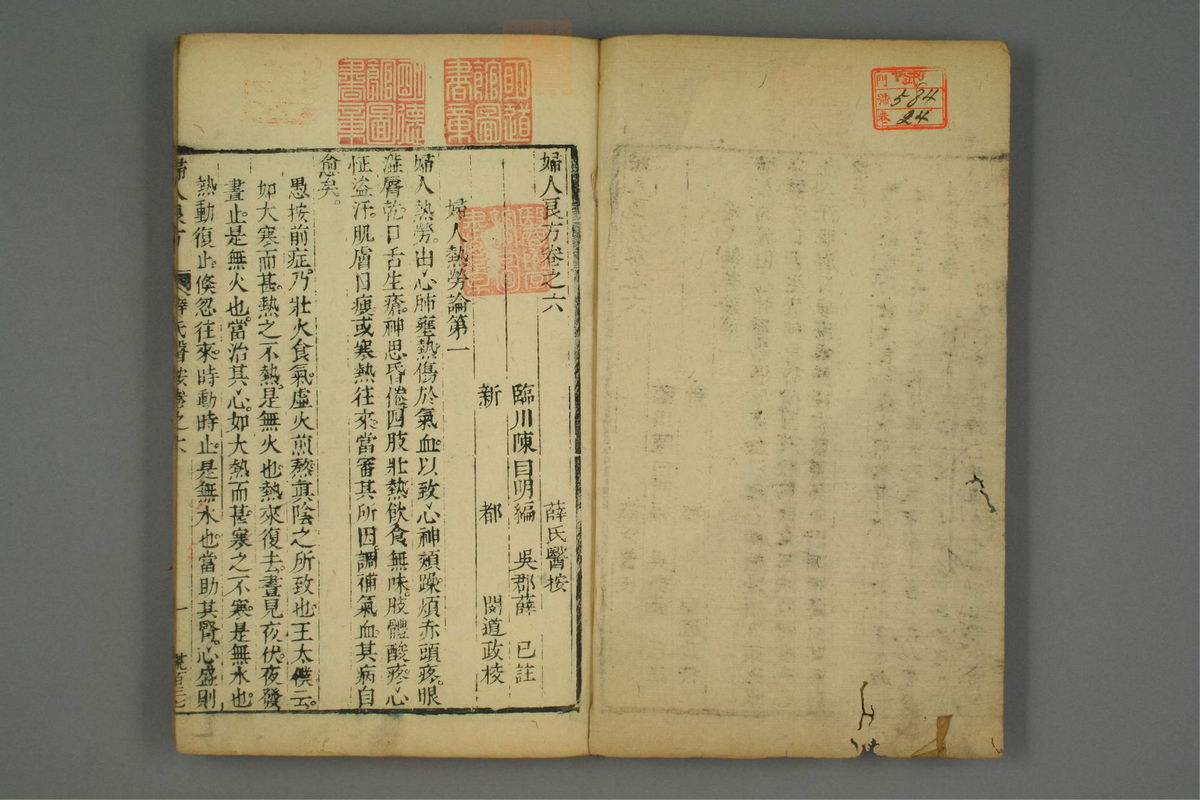 門 號 卷
584
24
明道館圖書章
明德館圖書章
婦人良方卷之六 薛氏醫按
臨川陳自明編 吳郡薛 已註
新 都 閔道政棱
婦人熱勞論第一
婦人熱勞。由心肺壅熱。傷於氣血。以致心神煩躁。煩赤頭疼。眼
澁脣乾。口舌生瘡。神思昏倦。四肢壯熱。飲食無味。肢體酸疼。心
怔盜汗。肌膚日瘦。或寒熱往來。當審其所因。調補氣血。其病自
愈矣。
愚按前症。乃壯火食氣。虛火煎熬眞陰之所致也。王太僕云。
如大寒而甚。熱之不熱。是無火也。熱來復去。晝見夜伏。夜發
晝止。是無火也。當治其心。如大熱而甚。寒之不寒。是無水也。
熱動復止。倏忽往來。時動時止。是無水也。當助其腎。心盛則
婦人良方 薛氏醫按卷之六 一